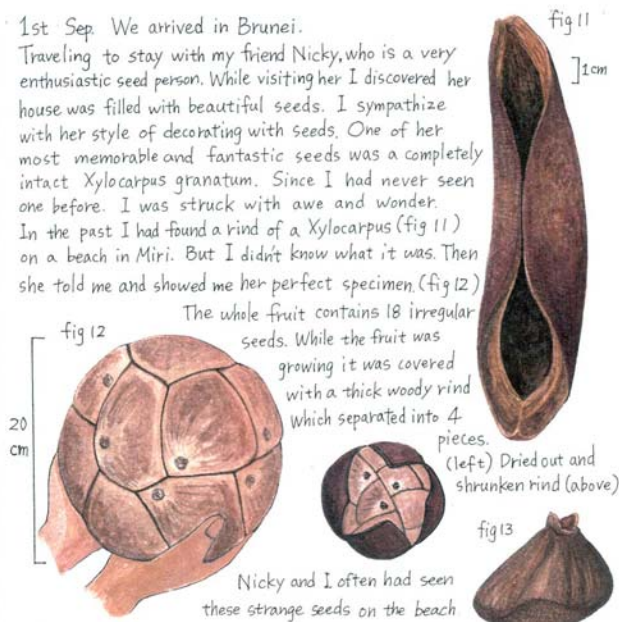 1st Sep. We arrived in Brunei.
fig 11
Traveling to stay with my friend Nicky, who is a very
enthusiastic seed person. While visiting her I discovered her
1cm
house was filled with beautiful seeds. I sympathize
with her style of decorating with seeds. One of her
most memorable and fantastic seeds was a completely
intact Xylocarpus granatum. Since I had never seen
one before. I was struck with awe and wonder.
In the past I had found a rind of a Xylocarpus (fig 11)
on a beach in Miri. But I didn't know what it was. Then
she told me and showed me her perfect specimen. (fig 12)
The whole fruit contains 18 irregular
fig 12
seeds. While the fruit was
growing it was covered
with a thick woody rind
which separated into 4
pieces.
20
cm
(left) Dried out and
shrunken rind (above)
fig 13
Nicky and I often had seen
these strange seeds on the beach